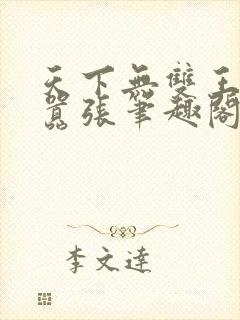 天下無雙王
囂張筆趣閣
李文達